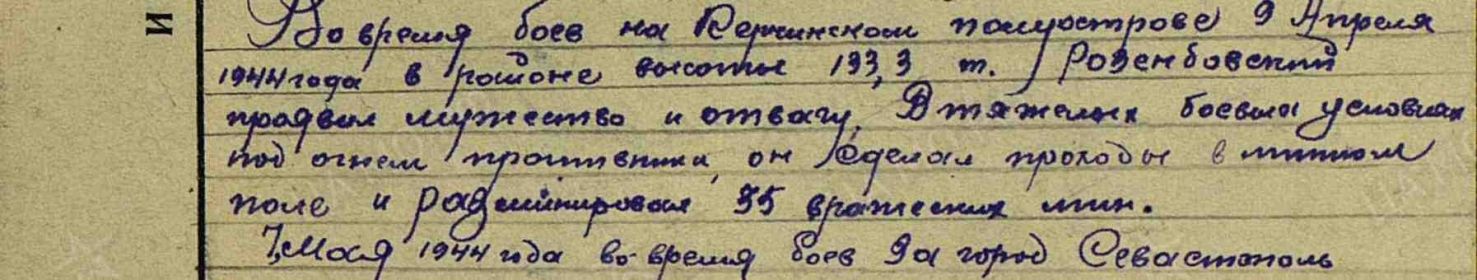 И
Во время боев на Керченском полуострове 9 Апреля
1944 года в районе высоты 133,3 т. Розенбовский
проявил мужество и отвагу. В тяжелых боевых условиях
под огнем противника, он сделал проходы в минном
поле и разминировал 35 вражеских мин.
7 Мая 1944 года во время боев за город Севастополь